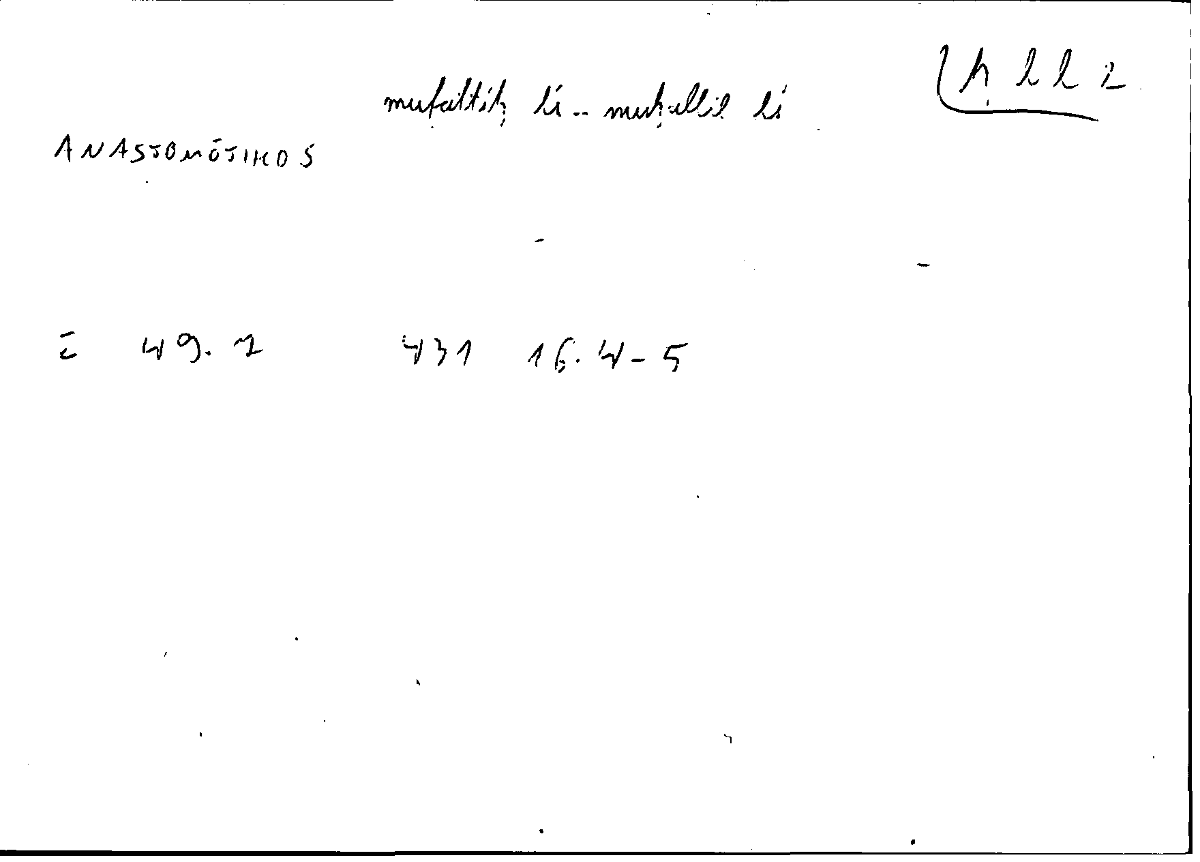 ḥ l l 2
mufattiḥ li.. muḥallil li
ANASTOMŌTIKOS
49.1 431 16.4-5